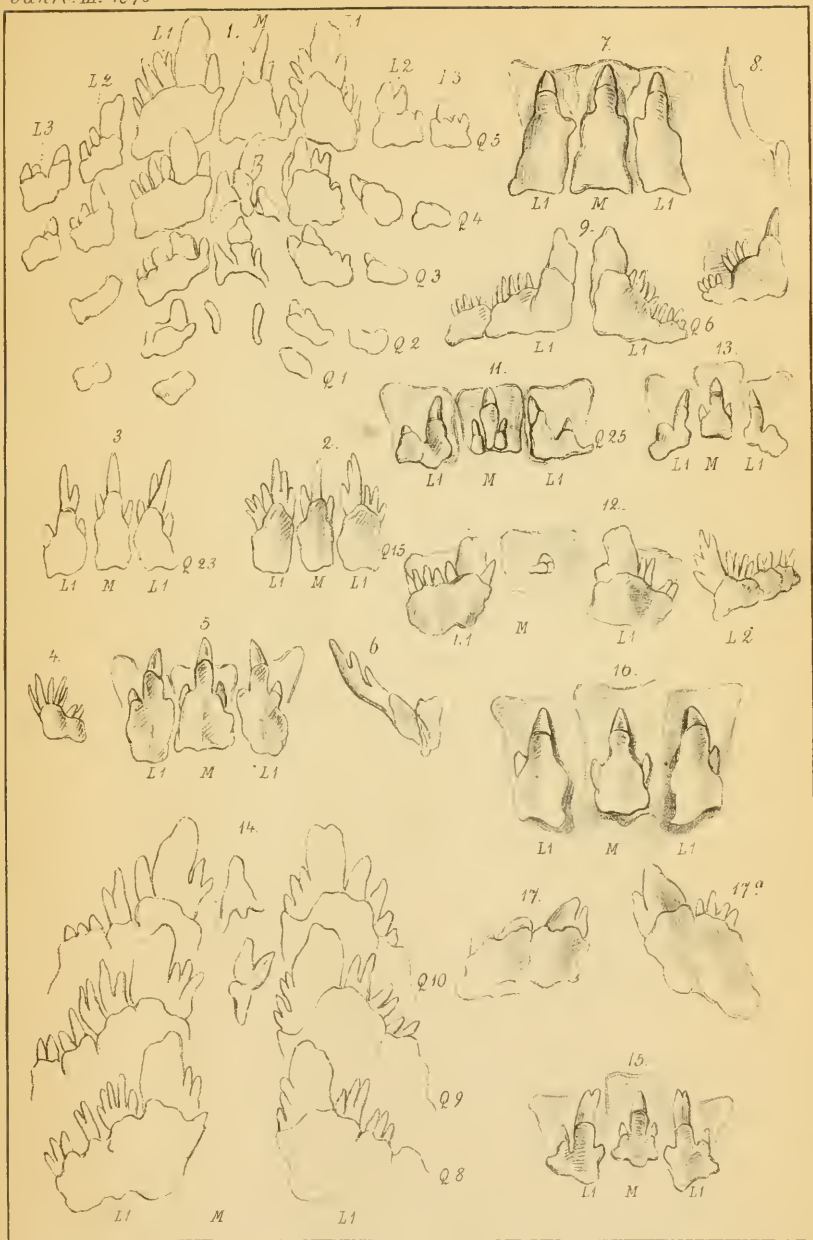 1.
L1 M L1
L2 L2
L3
Q5
Q4
Q3
Q2
Q1
7.
L1 M L1
8.
9.
L1 L1
Q6
13.
L1 M L1
11.
Q25
L1 M L1
3
L1 M L1
Q23
2.
Q15
L1 M L1
12.
L1 M L1 L2
4.
5
L1 M L1
6
16.
L1 M L1
14.
Q10
Q9
Q8
L1 M L1
17.
17a
15.
L1 M L1